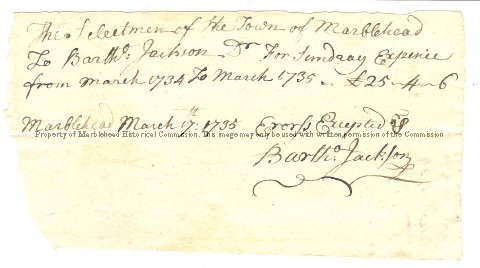 The Selectmen of the Town of Marblehead
To Bartho: Jackson Dr For Sundray Expence
from March 1734 To March 1735 .. £25-4-6
Marblehead March 17th: 1735 Erors Excepted
Property of Marblehead Historical Commission. This image may only be used with written permission of the Commission
Bartho Jackson